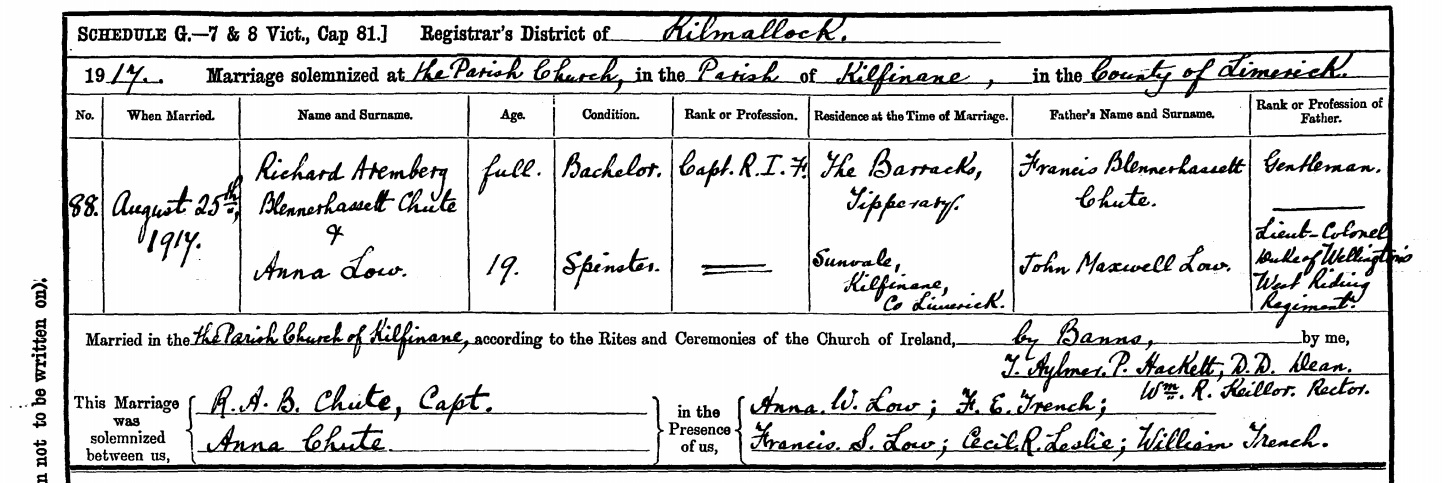 SCHEDULE G.—7 & 8 Vict., Cap 81.] Registrar's District of Kilmallock.
1917. Marriage solemnized at the Parish Church, in the Parish of Kilfinane, in the County of Limerick.
No. When Married. Name and Surname. Age. Condition. Rank or Profession. Residence at the Time of Marriage. Father's Name and Surname. Rank or Profession of Father.
88. August 25th, 1917.
Richard Aremberg
Blennerhassett Chute
full. Bachelor. Capt. R.I.F.
The Barracks,
Tipperary.
Francis Blennerhassett
Chute.
Gentleman.
&
Anna Low. 19. Spinster.
Sunvale,
Kilfinane,
Co Limerick.
John Maxwell Low.
Lieut-Colonel
Duke of Wellington's
West Riding
Regiment.
Married in the the Parish Church of Kilfinane, according to the Rites and Ceremonies of the Church of Ireland, by Banns, by me,
T. Aylmer. P. Hackett, D.D. Dean.
Wm. R. Keillor. Rector.
This Marriage was solemnized between us,
R. A. B. Chute, Capt.
Anna Chute
in the Presence of us,
Anna. W. Low; F. E. Trench;
Francis. S. Low; Cecil. R. Leslie; William Trench.
n not to be written on).